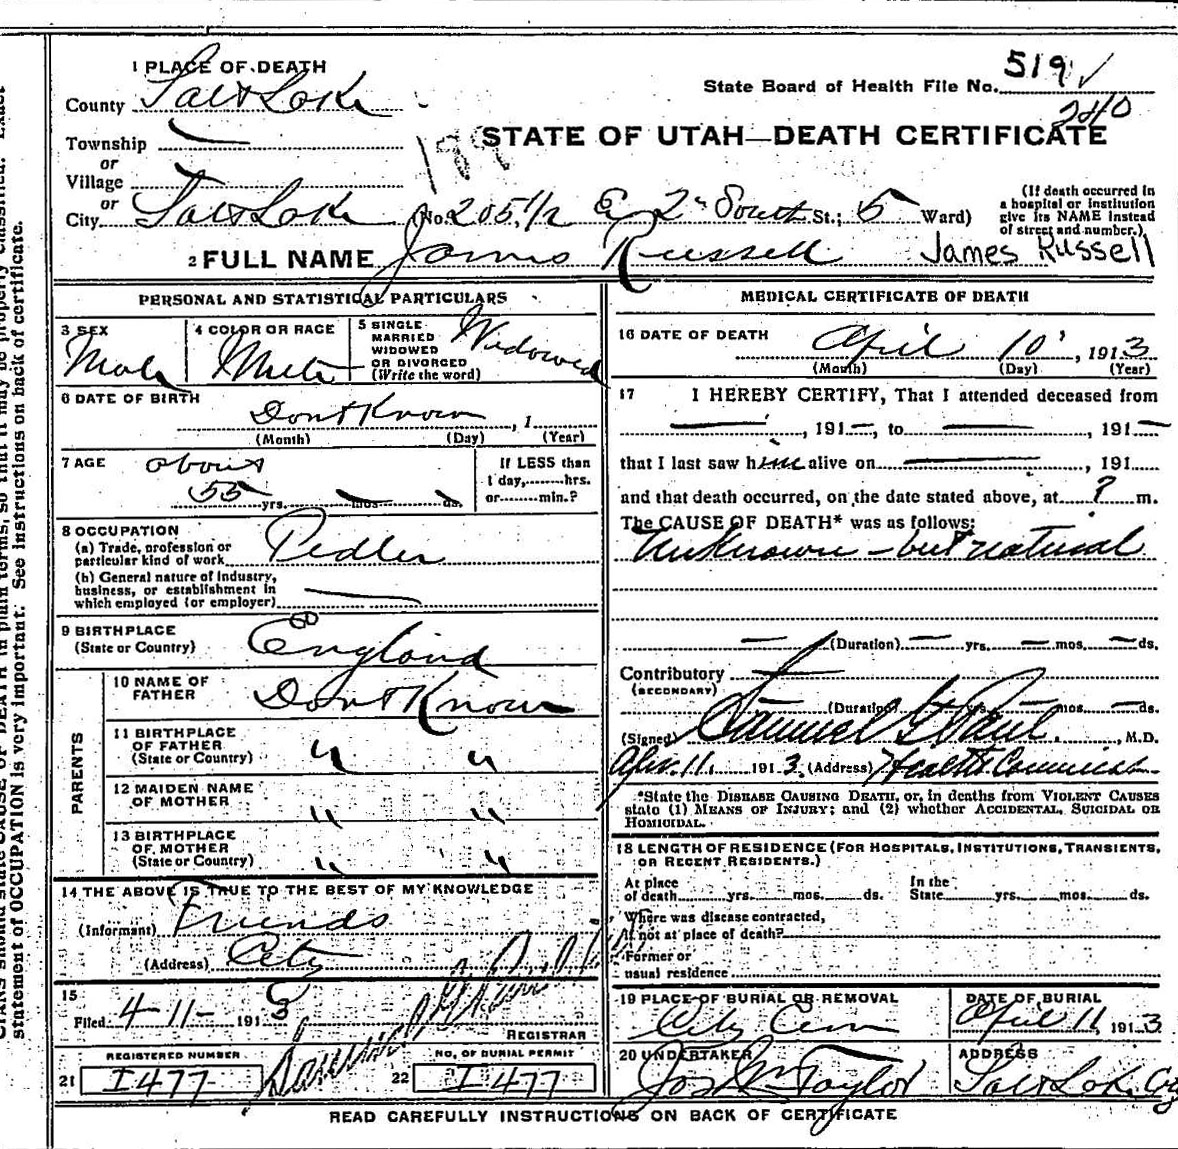 1 PLACE OF DEATH
County Salt Lake
State Board of Health File No. 519
240
Township
or
Village
or
City Salt Lake (No. 205 1/2 E 2" South St.; 5 Ward)
189
STATE OF UTAH—DEATH CERTIFICATE
(If death occurred in a hospital or institution give its NAME instead of street and number.)
2 FULL NAME James Russell James Russell
PERSONAL AND STATISTICAL PARTICULARS
3 SEX
Male
4 COLOR OR RACE
White
5 SINGLE MARRIED WIDOWED OR DIVORCED (Write the word)
Widowed
6 DATE OF BIRTH
Dont Know, 1
(Month) (Day) (Year)
7 AGE about
55 yrs. mos ds.
If LESS than 1 day, hrs. or min.?
8 OCCUPATION
(a) Trade, profession or particular kind of work Pedler
(b) General nature of industry, business, or establishment in which employed (or employer)
9 BIRTHPLACE (State or Country) England
PARENTS
10 NAME OF FATHER Dont Know
11 BIRTHPLACE OF FATHER (State or Country) " "
12 MAIDEN NAME OF MOTHER " "
13 BIRTHPLACE OF MOTHER (State or Country) " "
14 THE ABOVE IS TRUE TO THE BEST OF MY KNOWLEDGE
(Informant) Friends
(Address) City
15
Filed 4-11- 1913
REGISTRAR
REGISTERED NUMBER
21 I 477
NO. OF BURIAL PERMIT
22 I 477
MEDICAL CERTIFICATE OF DEATH
16 DATE OF DEATH
April 10, 1913
(Month) (Day) (Year)
17 I HEREBY CERTIFY, That I attended deceased from
—, 191—, to —, 191—
that I last saw him alive on —, 191
and that death occurred, on the date stated above, at ? m.
The CAUSE OF DEATH* was as follows:
Unknown – but natural
(Duration) yrs. mos. ds.
Contributory
(SECONDARY)
(Duration) yrs. mos. ds.
(Signed) Samuel G Paul, M.D.
Apr. 11. 1913. (Address) Health Commiss
*State the DISEASE CAUSING DEATH, or, in deaths from VIOLENT CAUSES
state (1) MEANS OF INJURY; and (2) whether ACCIDENTAL, SUICIDAL OR
HOMICIDAL.
18 LENGTH OF RESIDENCE (FOR HOSPITALS, INSTITUTIONS, TRANSIENTS,
OR RECENT RESIDENTS.)
At place of death yrs. mos. ds. In the State yrs. mos. ds.
Where was disease contracted,
if not at place of death?
Former or
usual residence
19 PLACE OF BURIAL OR REMOVAL
City Cem
DATE OF BURIAL
April 11, 1913
20 UNDERTAKER
Jos Wm Taylor
ADDRESS
Salt Lake Cy
READ CAREFULLY INSTRUCTIONS ON BACK OF CERTIFICATE
statement of OCCUPATION is very important. See instructions on back of certificate.